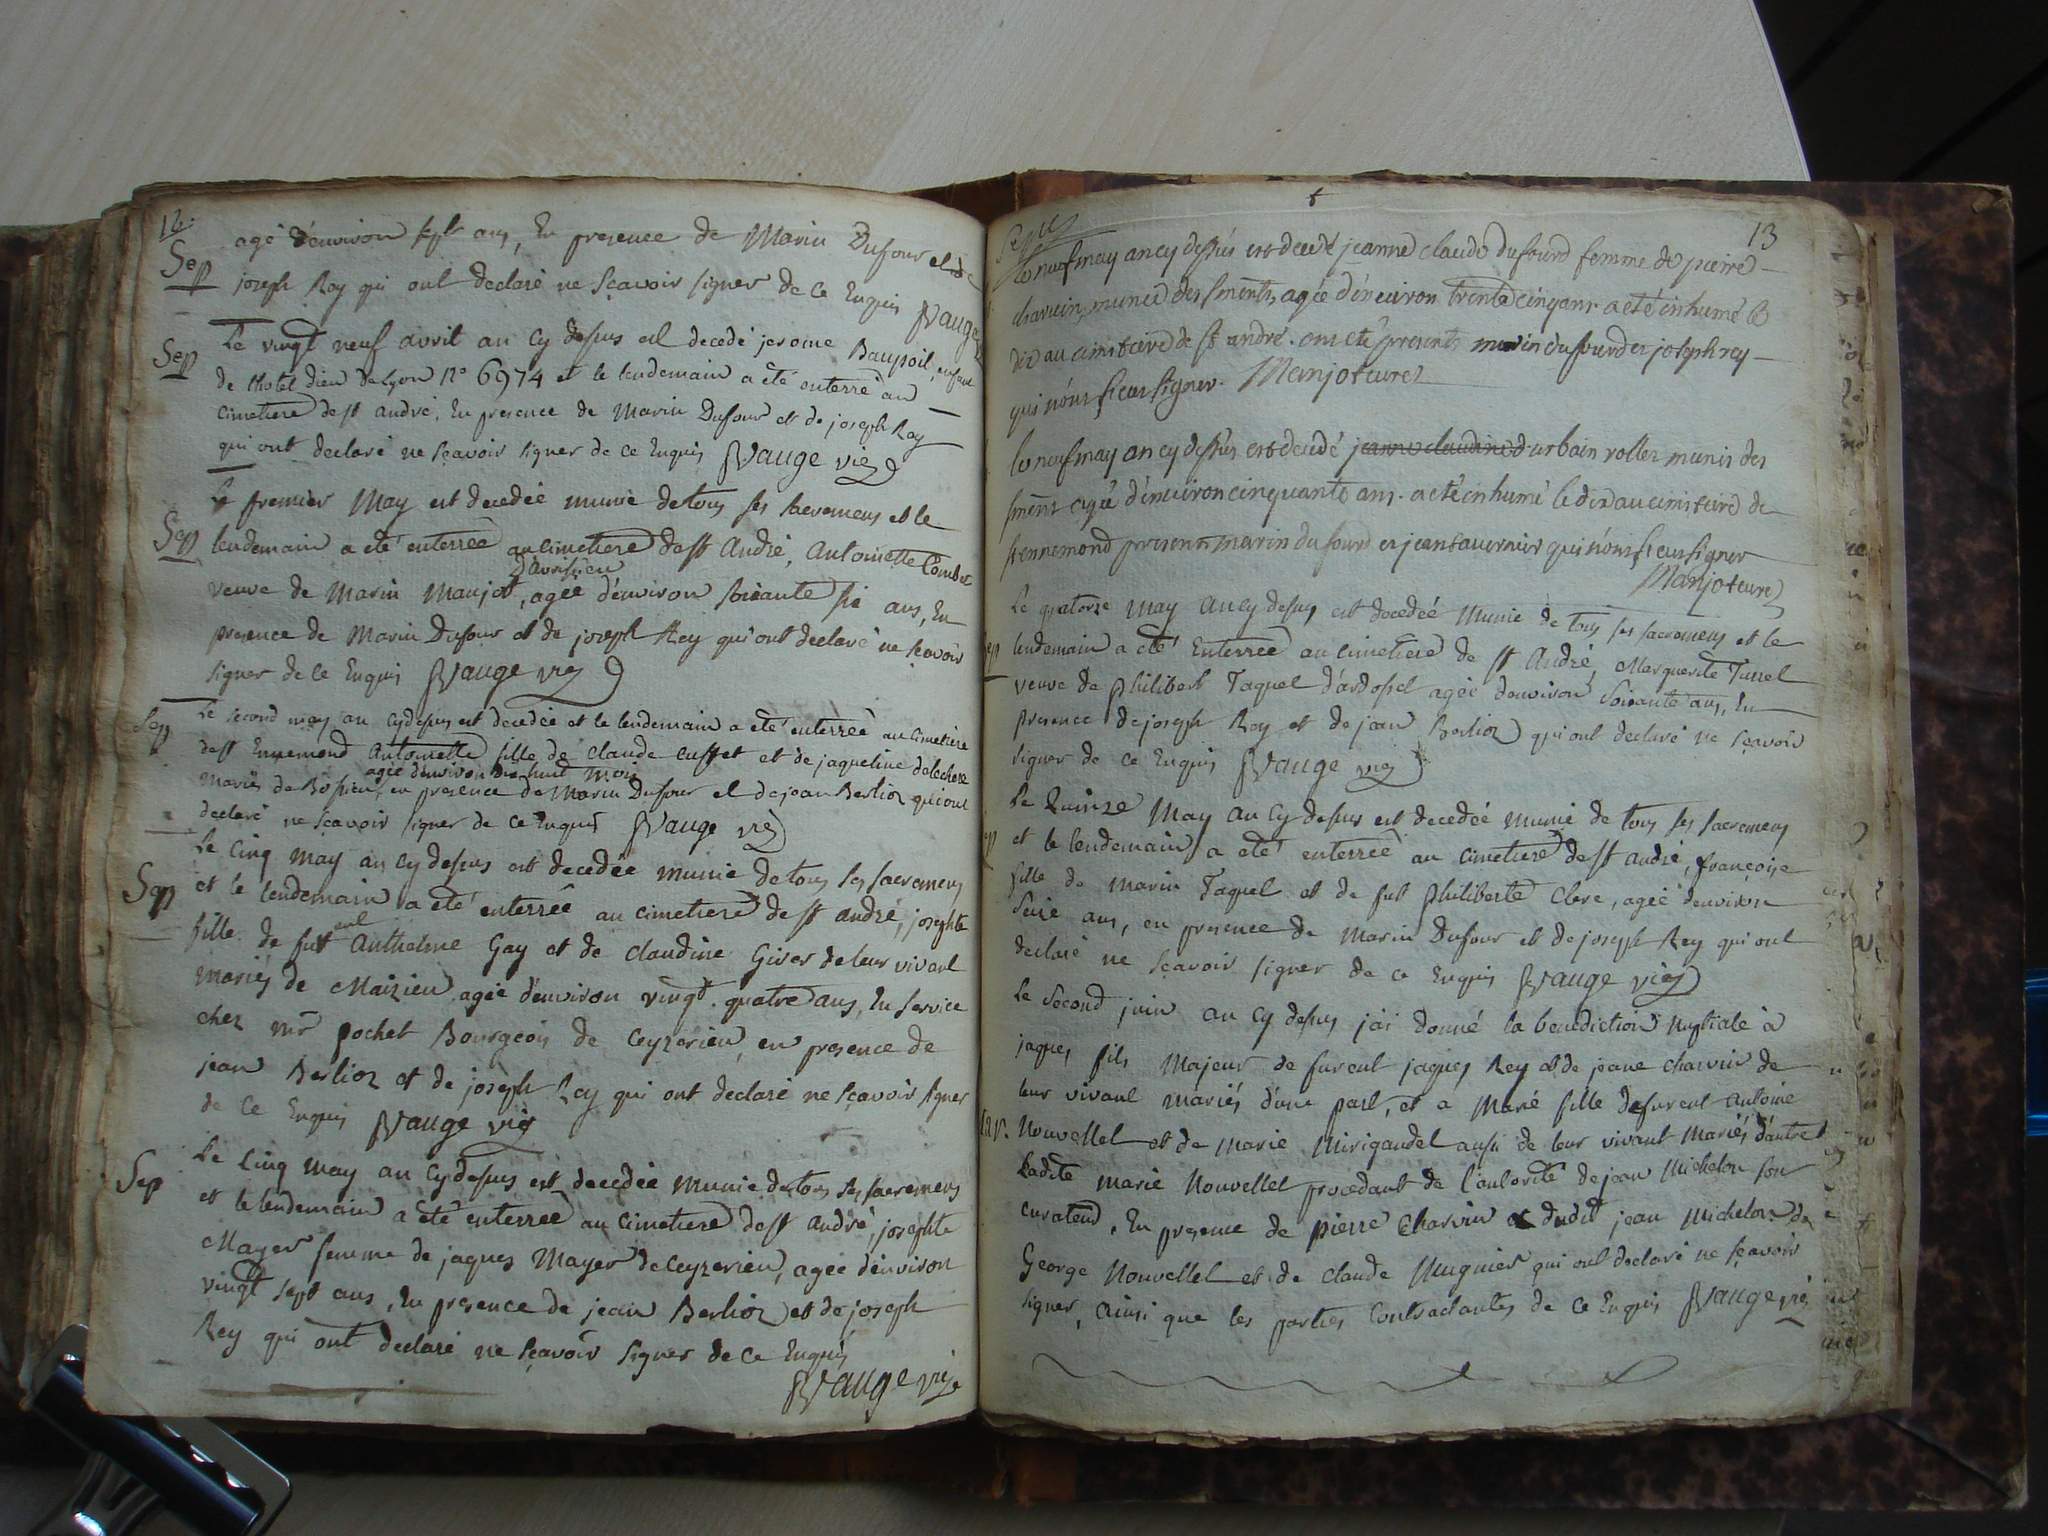 12.
Sep
agé d'environ sept ans, En presence de Marin Dufour et de
joseph Rey qui ont declaré ne sçavoir signer de ce Enquis
Sep
Le vingt neuf avril an cy dessus est decedé jerome Baupoil, enfant
de l'hotel dieu de Lyon n° 6974 et le lendemain a eté enterré au
cimetiere de st andré, En presence de Marin Dufour et de joseph Rey
qui ont declaré ne sçavoir signer de ce Enquis Vauge vic
Sep
Le premier May est decedée munie de tous ses sacremens et le
lendemain a eté enterrée au cimetiere de st André, Antoinette Combet
veuve de Marin Manjot, agée d'environ soixante six ans, En
presence de Marin Dufour et de joseph Rey qui ont declaré ne sçavoir
signer de ce Enquis Vauge vic
Sep
Le second may an cy dessus est decedée et le lendemain a eté enterrée au cimetiere
de st Ennemond antoinette fille de claude cusset et de jaqueline
agée d'environ dix huit mois
mariés de Bossieu, en presence de Marin Dufour et de jean Berlioz qui ont
declaré ne sçavoir signer de ce Enquis Vauge vic
Sep
Le Cinq may an cy dessus est decedée munie de tous ses sacremens
et le lendemain a eté enterrée au cimetiere de st andré, josephte
fille de Anthelme Gay et de Claudine de leur vivant
mariés de Maizieu agée d'environ vingt quatre ans, En service
chez mr pochet Bourgeois de Ceyzerieu, en presence de
jean Berlioz et de joseph Rey qui ont declaré ne sçavoir signer
de ce Enquis Vauge vic
Sep
Le Cinq may an cy dessus est decedée munie de tous ses sacremens
et le lendemain a eté enterrée au cimetiere de st andré, josephte
Mayer femme de jaques Mayer de Ceyzerieu, agée d'environ
vingt sept ans, En presence de jean Berlioz et de joseph
Rey qui ont declaré ne sçavoir signer de ce Enquis
Vauge vic
13
le neuf may an cy dessus est decedé jeanne claude dufourd femme de pierre
charvin, munie des sments, agée d'environ trente cinq ans a eté inhumé le
dix au cimitiere de st andré. ont eté presents marin dufourd et joseph rey
qui n'ont sceu signer. Manjot curez
le neuf may an cy dessus est decedé jeanne claudine d urbain rollez munis des
sments agé d'environ cinquante ans. a eté inhumé le dix au cimitiere de
st ennemond presents marin dufourd et jean tavernier qui n'ont sceu signer
Manjot curez
Le quatorze may an cy dessus est decedée Munie de tous ses sacremens et le
lendemain a eté Enterrée au cimetiere de st André, Marguerite
veuve de Philibert Taquel d'ardosset agée d'environ soixante ans, En
presence de joseph Rey et de jean Berlioz qui ont declaré ne sçavoir
signer de ce Enquis Vauge vic
Le Quinze May an cy dessus est decedée munie de tous ses sacremens
et le lendemain a eté enterrée au cimetiere de st andré, françoise
fille de Marin Taquel et de fut Philiberte Clere, agée d'environ
seize ans, en presence de Marin Dufour et de joseph Rey qui ont
declaré ne sçavoir signer de ce Enquis Vauge vic
Le Second juin an cy dessus, j'ai donné la benediction Nuptiale à
jaques fils Majeur de furent jaques Rey et de jeane charvin de
leur vivant mariés d'une part, et a Marie fille de furent antoine
Nouvellet et de Marie Mirigaudet aussi de leur vivant Mariés d'autre
Ladite marie Nouvellet procedant de l'autorité de jean Michelon son
curateur, En presence de pierre charvin et dudit jean Michelon de
George Nouvellet et de claude Mugnier qui ont declaré ne sçavoir
signer, ainsi que les parties Contractantes de ce Enquis Vauge vic